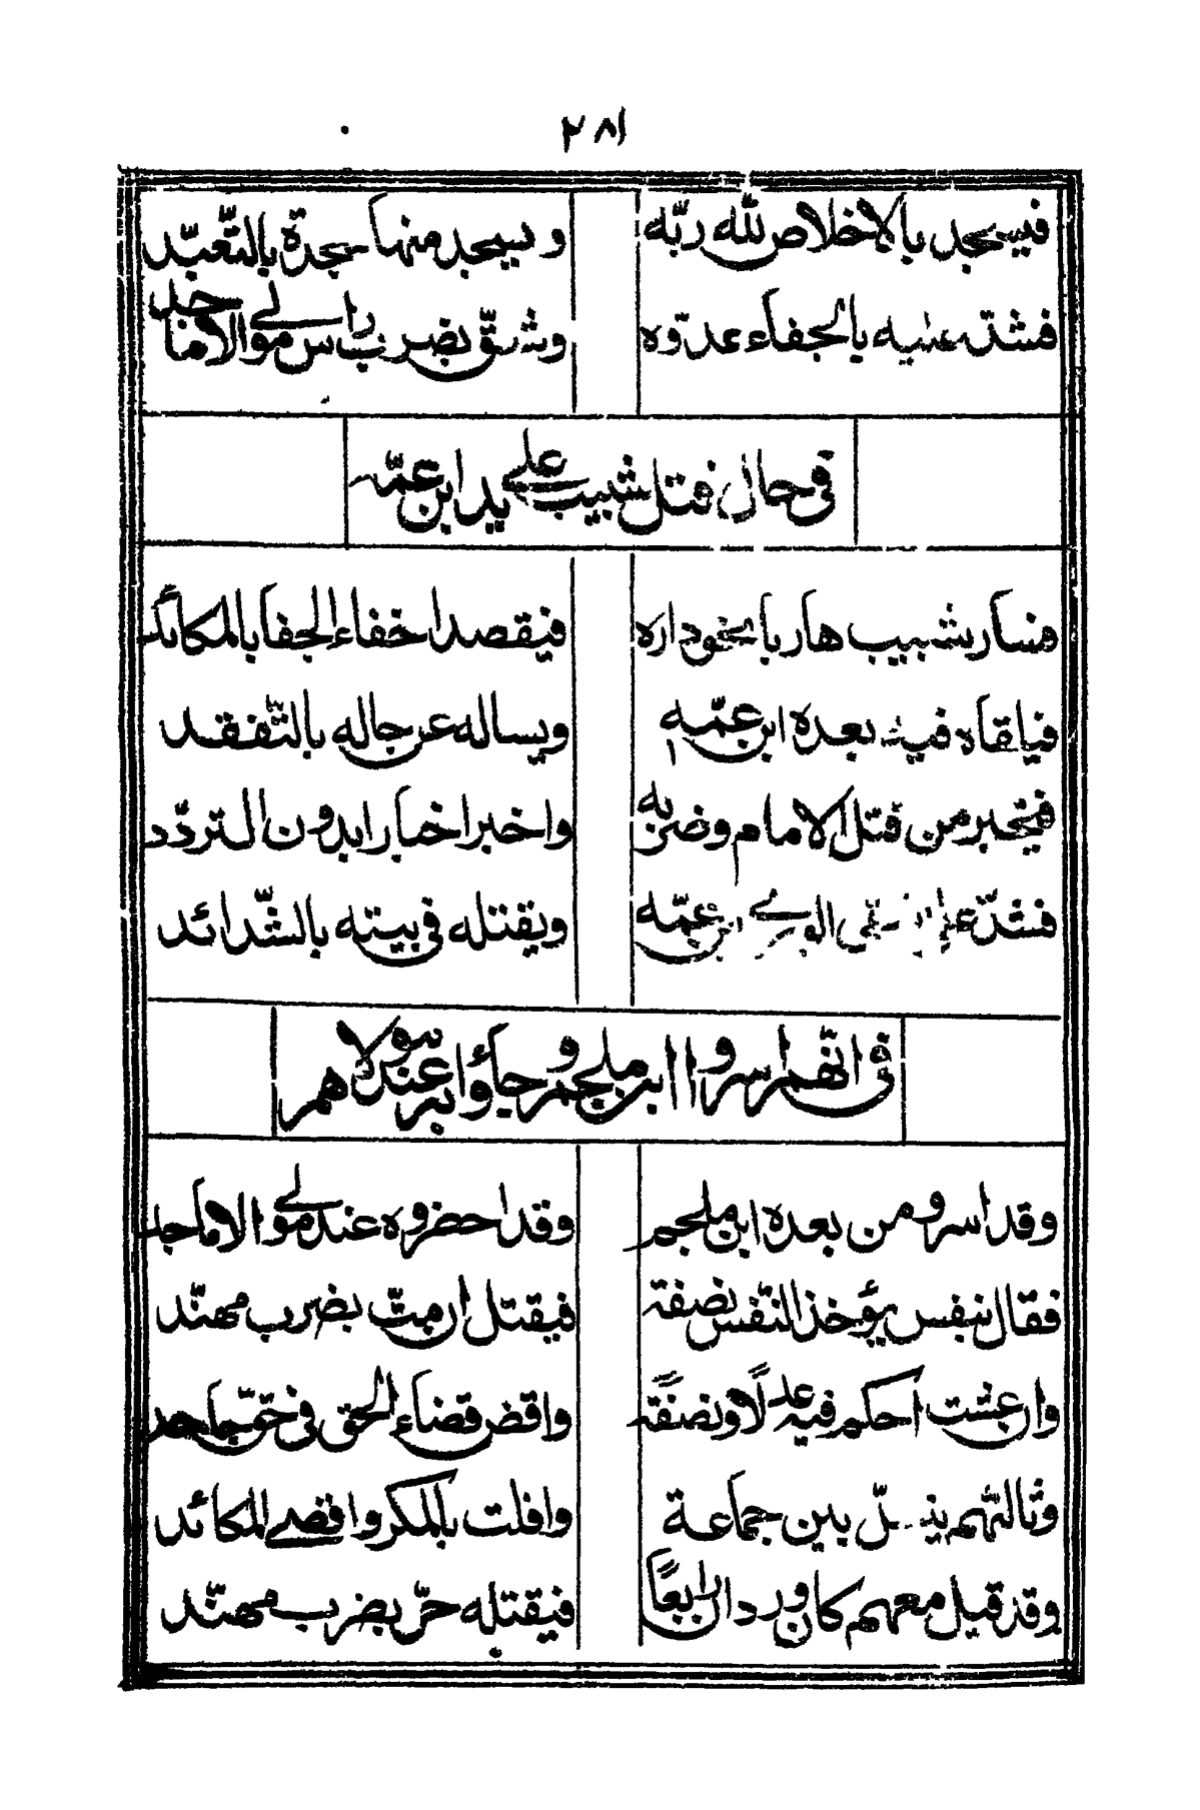 ٢٨١
فيسجد بالاخلاص لله ربّه ويسجد منها سجدة بالتّعبّد
فشدّ عليه بالجفاء عدوّه وشقّ بضرب راس مولى الاماجد
فى حال قتل شبيب على يد ابن عمّه
فسار شبيب هاربا نحو داره فيقصد اخفاء الجفا بالمكائد
فيلقاه فيه بعده ابن عمّه ويساله عن حاله بالتّفقد
فيخبر من قتل الامام وضربه واخبر اخبارا بدون التردّد
فشدّ عليه ابن عمّه ويقتله فى بيته بالشّدائد
فى انّهم اسروا ابن ملجم وجاؤا به عند مولاهم
وقد اسرو من بعده ابن ملجم وقد احضروه عند مولى الاماجد
فقال بنفس يؤخذ النّفس نصفة فيقتل ان متّ بضرب مهنّد
وان عشت احكم فيه عدلًا ونصفةً واقض قضاء الحق فى حقّ جاحد
وثالثهم ينسلّ بين جماعة وافلت بالمكر واقضى المكائد
وقد قيل معهم كان وردان رابعًا فيقتله حرّ بضرب مهنّد